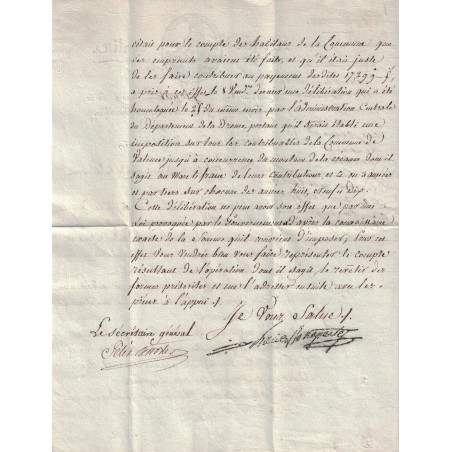 était pour le compte des habitans de la Commune que
les emprunts avaient été faits, et qu'il était juste
de les faire contribuer au payement desdites 17291
a pris à cet effet le 8 Vend.re dernier une délibération qui a été
homologuée le 28 du même mois, par l'administration Centrale
du Département de la Drome, portant qu'il serait établi une
imposition sur tous les contribuables de la Commune de
Valence jusqu'à concurrence du montant de la créance dont il
s'agit au Marc le franc de leurs contributions et ce en 3 années
et par tiers sur chacune des années huit, neuf et dix.
Cette délibération ne peut avoir son effet que par une
Loi provoquée par le Gouvernement d'après la connaissance
exacte de la somme qu'il convient d'imposer, sous cet
effet Vous Voudrez bien vous faire représenter le compte
résultant de l'opération dont il s'agit, le revêtir des
formes préscrites et me l'adresser ensuite avec les
pièces à l'appui.
Je Vous Salue.
Le secrétaire général